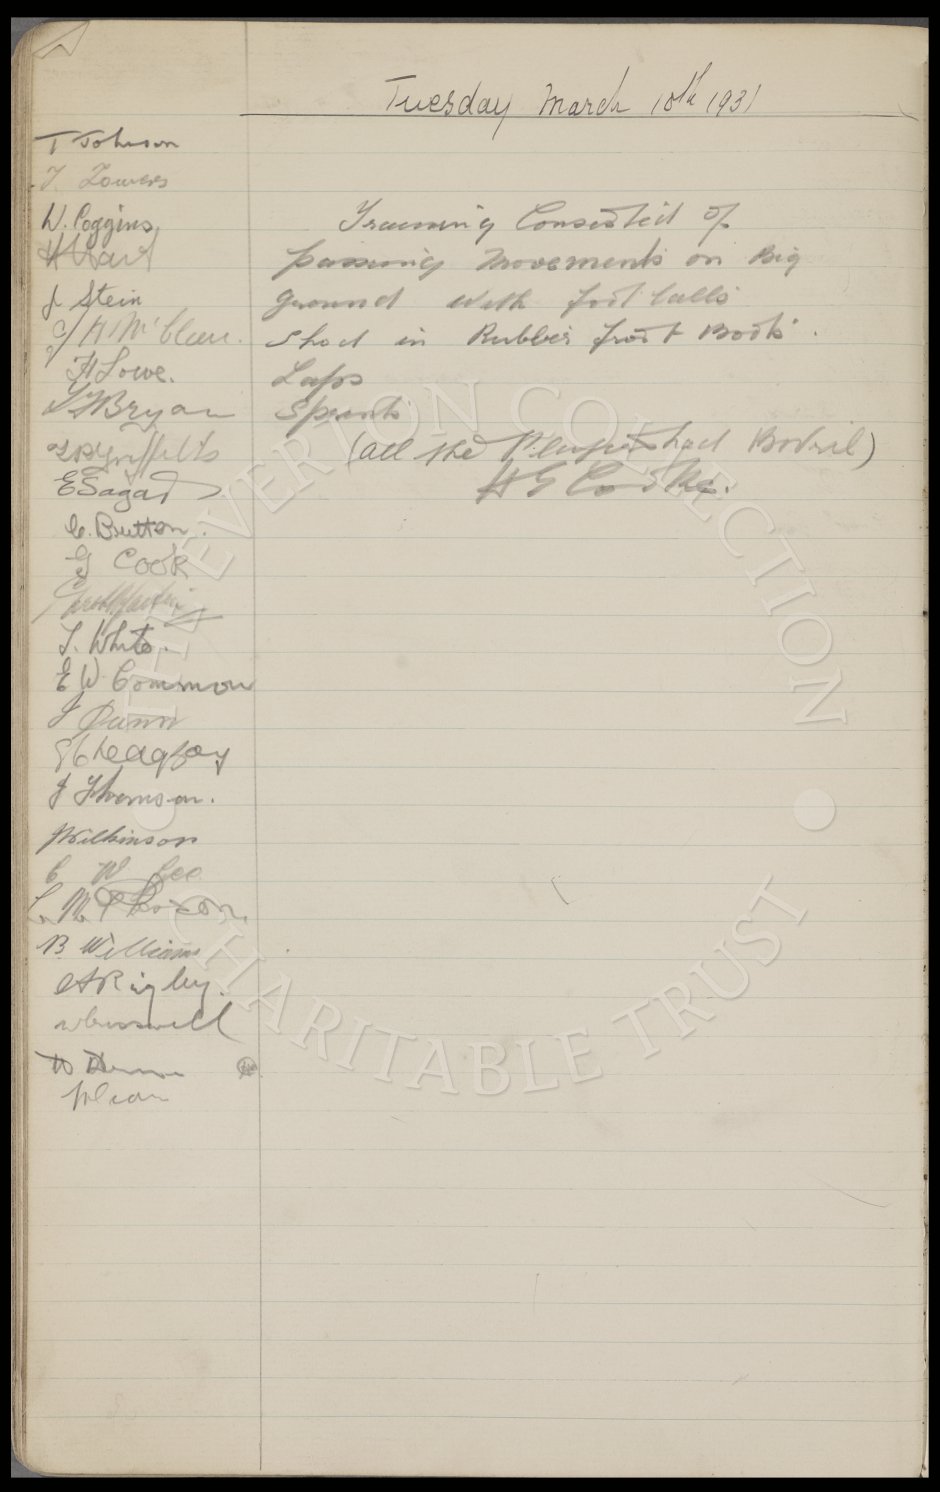 Tuesday March 10th 1931
T Johnson
T. Towers
W. Coggins
J Stein
H Lowe.
T Bryan
Griffiths
E Sagar
C. Britton.
G Cook
T. White.
E W Common
J Dunn
J Thomson.
Wilkinson
C W Gee
B Williams
A Rigby.
W Cresswell
W Dean
Training Consisted of
passing movements on Big
ground with foot balls
Shod in Rubber foot Boots.
Laps
Sprints
(all the Players had Bovril)
H G Cooke.
THE EVERTON COLLECTION
CHARITABLE TRUST